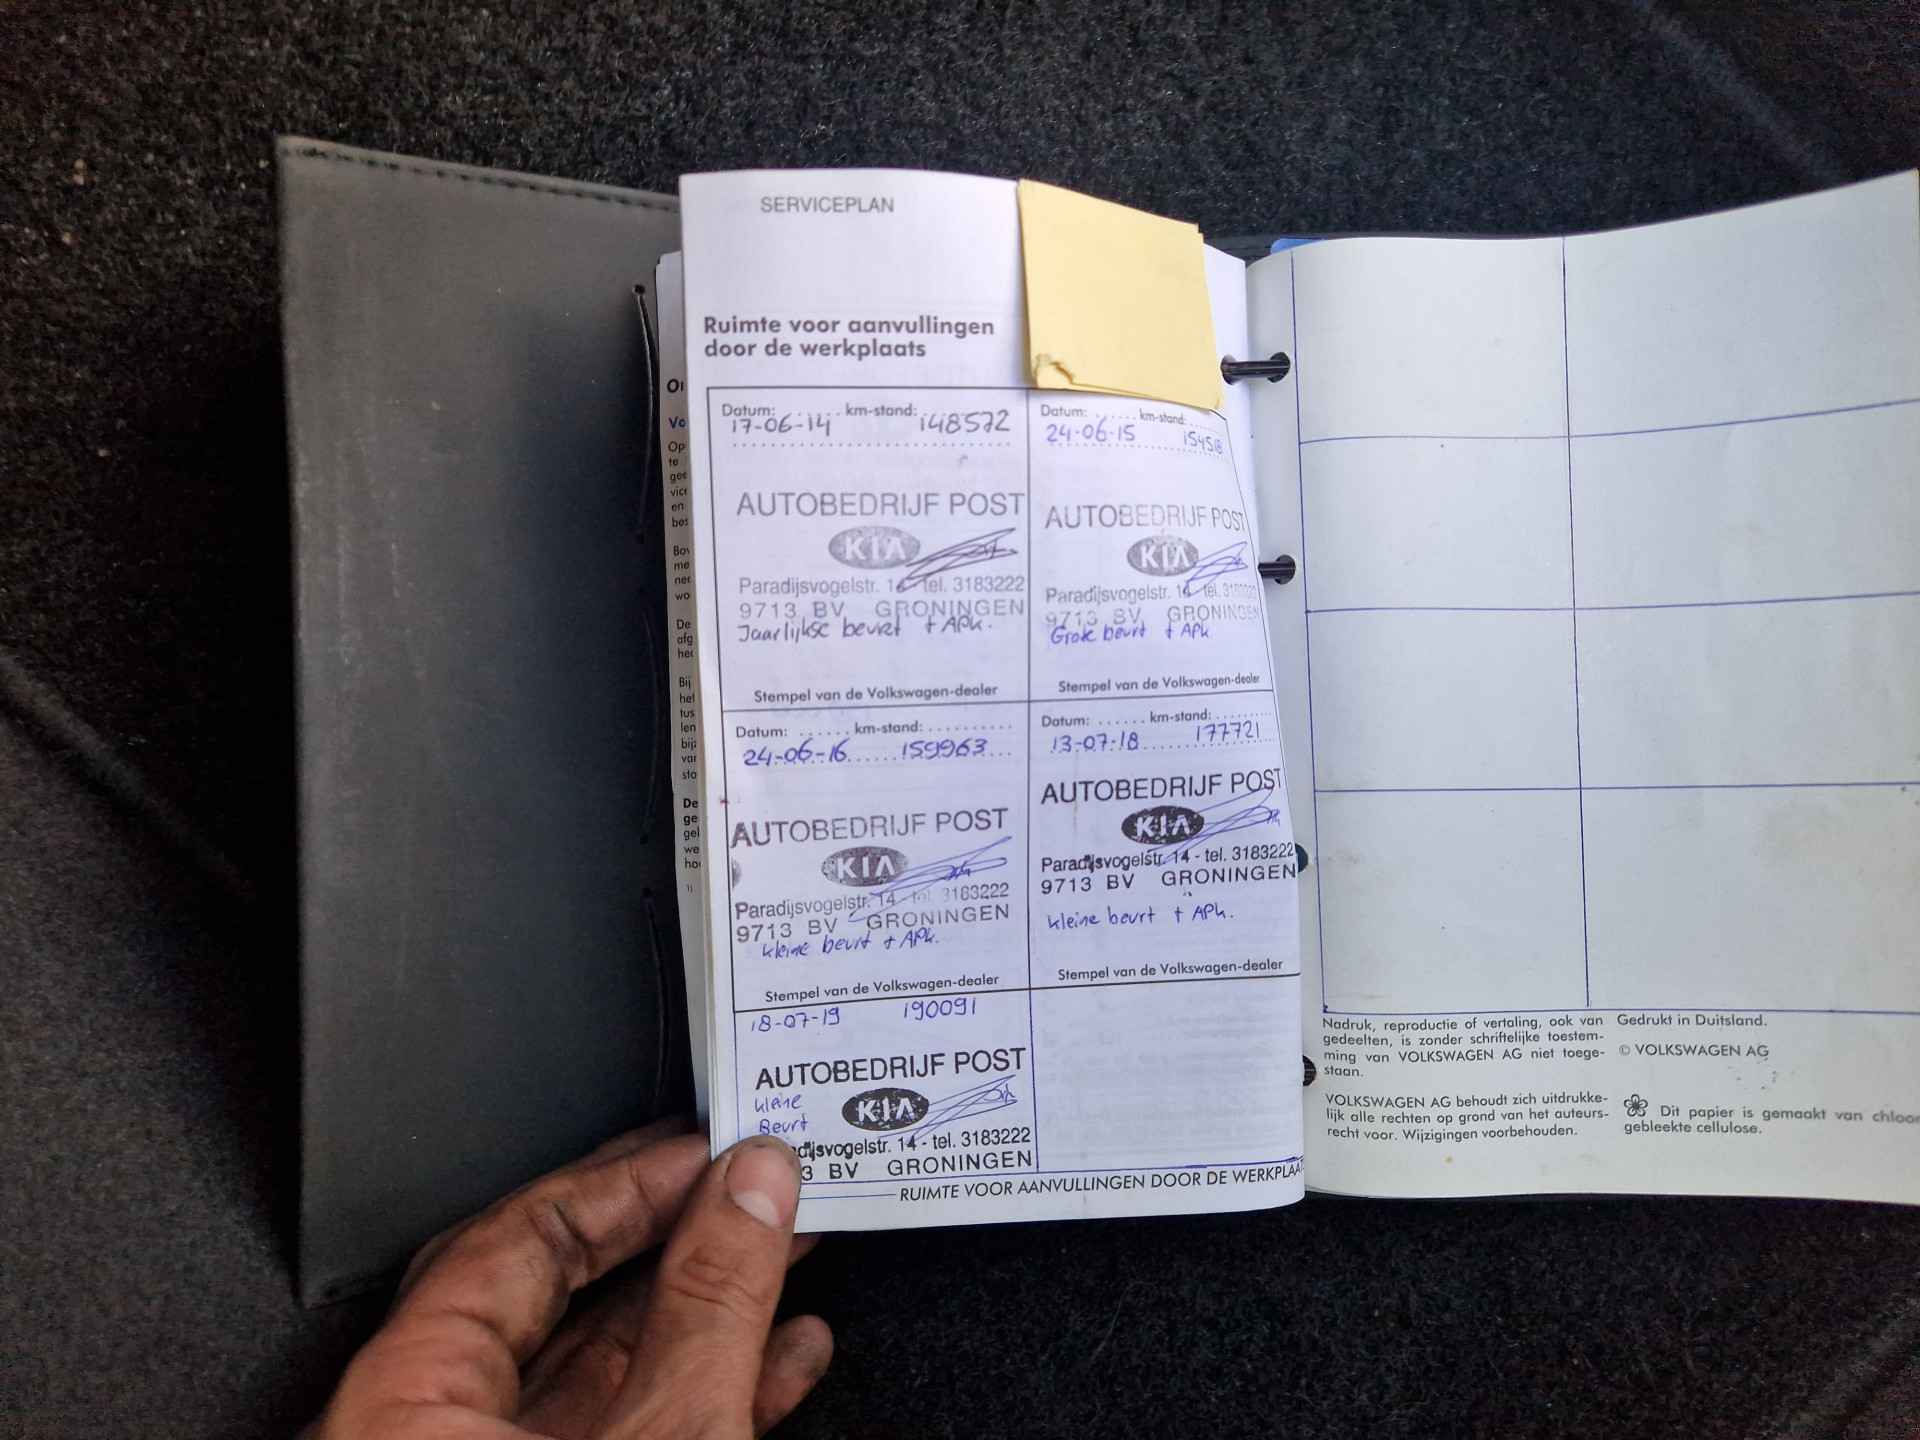 SERVICEPLAN
Ruimte voor aanvullingen
door de werkplaats
Datum: ...... km-stand: ..........
17-06-14 148572
AUTOBEDRIJF POST
KIA
Paradijsvogelstr. 14 tel. 3183222
9713 BV GRONINGEN
Jaarlijkse beurt + APK.
Stempel van de Volkswagen-dealer
Datum: ...... km-stand: ..........
24-06-15
AUTOBEDRIJF POST
KIA
Paradijsvogelstr. 14 tel.
9713 BV GRONINGEN
Grote beurt + APK
Stempel van de Volkswagen-dealer
Datum: ...... km-stand: ..........
24-06-16 159963
AUTOBEDRIJF POST
KIA
Paradijsvogelstr. 14 - tel. 3183222
9713 BV GRONINGEN
kleine beurt + APK.
Stempel van de Volkswagen-dealer
Datum: ...... km-stand: ..........
13-07-18 177721
AUTOBEDRIJF POST
KIA
Paradijsvogelstr. 14 - tel. 3183222
9713 BV GRONINGEN
kleine beurt + APK.
Stempel van de Volkswagen-dealer
18-07-19 190091
AUTOBEDRIJF POST
kleine
KIA
Beurt
dijsvogelstr. 14 - tel. 3183222
3 BV GRONINGEN
RUIMTE VOOR AANVULLINGEN DOOR DE WERKPLAA
Nadruk, reproductie of vertaling, ook van
gedeelten, is zonder schriftelijke toestem-
ming van VOLKSWAGEN AG niet toege-
staan.
VOLKSWAGEN AG behoudt zich uitdrukke-
lijk alle rechten op grond van het auteurs-
recht voor. Wijzigingen voorbehouden.
Gedrukt in Duitsland.
© VOLKSWAGEN AG
Dit papier is gemaakt van chloor
gebleekte cellulose.